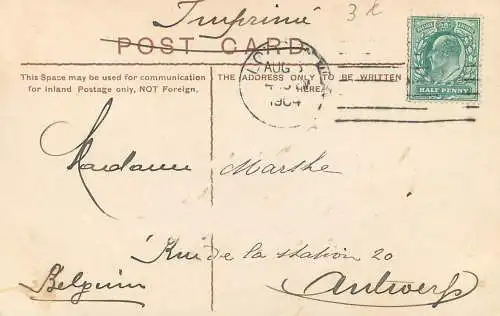 Imprimé
3k
POST CARD
This Space may be used for communication
for Inland Postage only, NOT Foreign.
THE ADDRESS ONLY TO BE WRITTEN
HERE.
AUG
1904
HALF PENNY
Madame Marshe
Rue de la station 20
Antwerp
Belgium